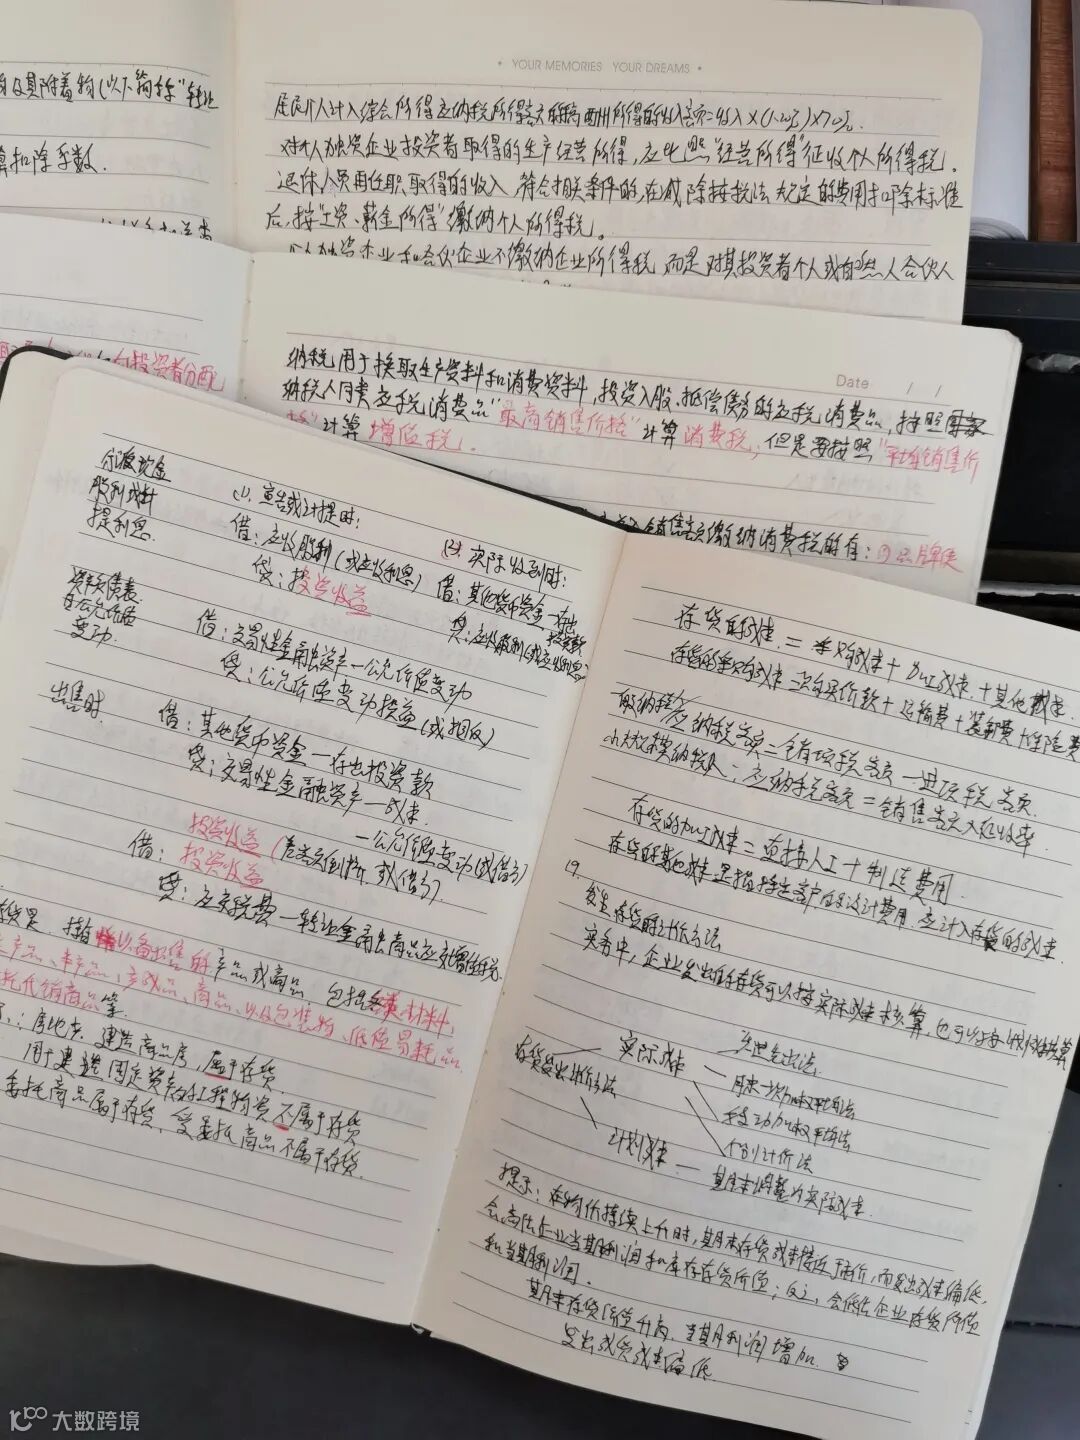 YOUR MEMORIES YOUR DREAMS
及其附着物(以下简称"转让
居民个人计入综合所得应纳税所得额的稿酬所得的收入额=收入×(1-20%)×70%.
扣除予数.
对个人独资企业投资者取得的生产经营所得,应比照"经营所得"征收个人所得税.
退休人员再任职取得的收入,符合相关条件的,在减除按税法规定的费用扣除标准
后,按"工资、薪金所得"缴纳个人所得税.
个人独资企业和合伙企业不缴纳企业所得税,而是对其投资者个人或自然人合伙人
Date / /
向投资者分配
纳税用于换取生产资料和消费资料,投资入股、抵偿债务的应税消费品,按照
纳税人同类应税消费品"最高销售价格"计算消费税;但是要按照"平均销售价
格"计算增值税.
销售额缴纳消费税的有:
分派现金
股利或计
提利息.
(1). 宣告或计提时:
借:应收股利(或应收利息)
贷:投资收益
(2). 实际收到时:
借:其他货币资金—存出投资款
贷:应收股利(或应收利息)
资产负债表
日公允价值
变动.
借:交易性金融资产—公允价值变动
贷:公允价值变动损益(或相反)
出售时.
借:其他货币资金—存出投资款
贷:交易性金融资产—成本.
—公允价值变动(或借方)
投资收益(差额倒挤,或借方).
借:投资收益
贷:应交税费—转让金融商品应交增值税
产品或商品,包括各类材料,
产品、半产品、产成品、商品、以及包装物、低值易耗品
托代销商品等.
:房地产,建造商品房,属于存货
用于建造固定资产的工程物资不属于存货
委托商品属于存货,受委托商品不属于存货.
存货的成本=采购成本+加工成本+其他成本.
存货的采购成本=
应纳税额=销项税额—进项税额.
小规模纳税人:应纳税额=销售额×征收率.
存货的加工成本=直接人工+制造费用.
存货的其他成本是指特定客户的设计费用,应计入存货的成本.
发出存货的计价方法
实务中,企业发出的存货可以按实际成本核算,也可以按计划成本核算
存货发出计价方法
实际成本
先进先出法
月末一次加权平均法
移动加权平均法
个别计价法
计划成本—期末调整为实际成本.
提示:在物价持续上升时,期末存货成本接近于市价,而发出成本偏低,
会高估企业当期利润和库存存货价值;反之,会低估企业存货价值
和当期利润.
期末存货价值升高,当期利润增加.
发出存货成本偏低.
大数跨境